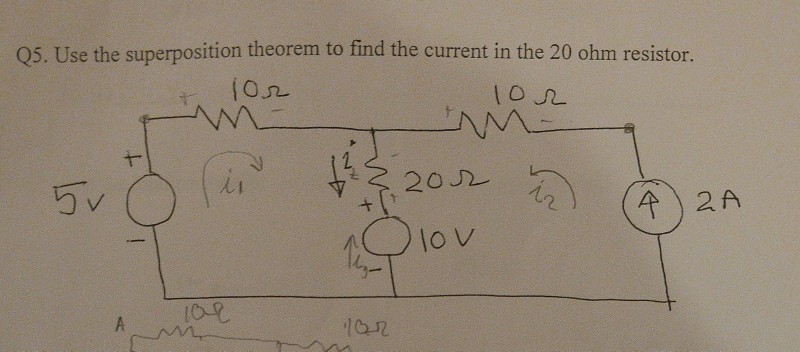 Q5. Use the superposition theorem to find the current in the 20 ohm resistor.
10Ω 10Ω
+ - + -
+ i₁ i₂ - 20Ω i₂ 2A
5v + +
- 10V
i₃ -
10Ω
A 10Ω